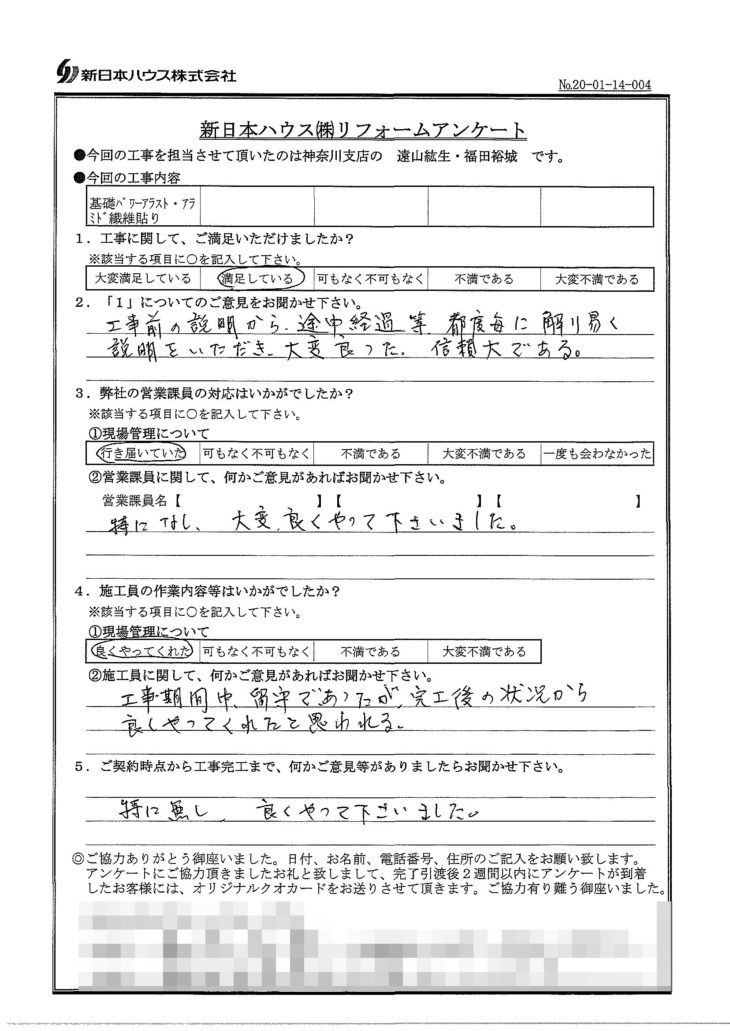 新日本ハウス株式会社
№20-01-14-004
新日本ハウス㈱リフォームアンケート
●今回の工事を担当させて頂いたのは神奈川支店の 遠山紘生・福田裕城 です。
●今回の工事内容
基礎ﾊﾟﾜｰアラスト・アラ
ﾐﾄﾞ繊維貼り
1．工事に関して、ご満足いただけましたか？
※該当する項目に○を記入して下さい。
大変満足している 満足している 可もなく不可もなく 不満である 大変不満である
2．「1」についてのご意見をお聞かせ下さい。
工事前の説明から、途中経過等、都度毎に解り易く
説明をいただき、大変良った。信頼大である。
3．弊社の営業課員の対応はいかがでしたか？
※該当する項目に○を記入して下さい。
①現場管理について
行き届いていた 可もなく不可もなく 不満である 大変不満である 一度も会わなかった
②営業課員に関して、何かご意見があればお聞かせ下さい。
営業課員名【 】【 】【 】
特になし、大変、良くやって下さいました。
4．施工員の作業内容等はいかがでしたか？
※該当する項目に○を記入して下さい。
①現場管理について
良くやってくれた 可もなく不可もなく 不満である 大変不満である
②施工員に関して、何かご意見があればお聞かせ下さい。
工事期間中、留守であったが、完工後の状況から
良くやってくれたと思われる。
5．ご契約時点から工事完工まで、何かご意見等がありましたらお聞かせ下さい。
特に無し、良くやって下さいました。
◎ご協力ありがとう御座いました。日付、お名前、電話番号、住所のご記入をお願い致します。
アンケートにご協力頂きましたお礼と致しまして、完了引渡後２週間以内にアンケートが到着
したお客様には、オリジナルクオカードをお送りさせて頂きます。ご協力有り難う御座いました。